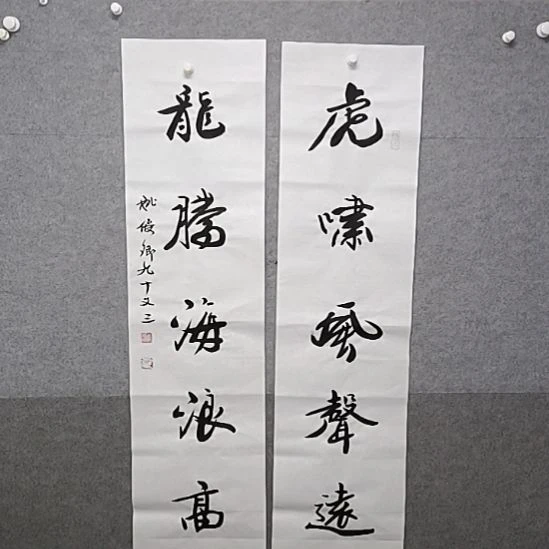 虎嘯風聲遠
龍騰海浪高
姚俊卿九十又三